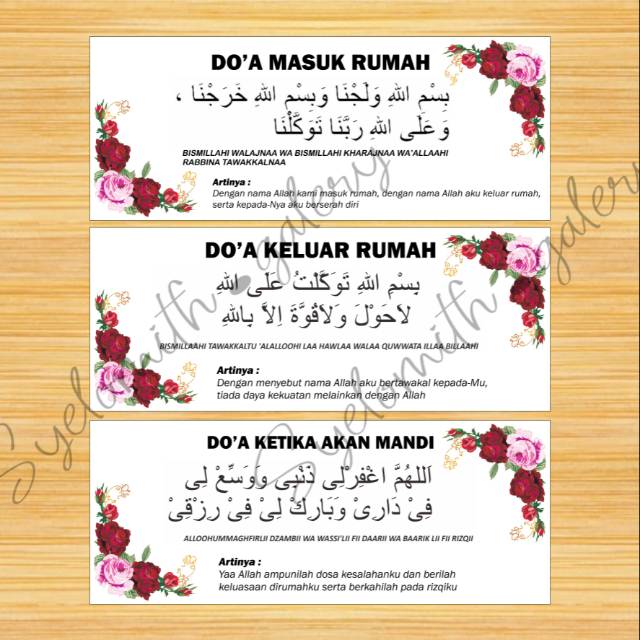 DO'A MASUK RUMAH
بِسْمِ اللهِ وَلَجْنَا وَبِسْمِ اللهِ خَرَجْنَا ،
وَعَلَى اللهِ رَبِّنَا تَوَكَّلْنَا
BISMILLAHI WALAJNAA WA BISMILLAHI KHARAJNAA WA'ALLAAHI
RABBINA TAWAKKALNAA
Artinya :
Dengan nama Allah kami masuk rumah, dengan nama Allah aku keluar rumah,
serta kepada-Nya aku berserah diri
DO'A KELUAR RUMAH
بِسْمِ اللهِ تَوَكَّلْتُ عَلَى اللهِ
لَاحَوْلَ وَلَاقُوَّةَ اِلاَّ بِاللهِ
BISMILLAAHI TAWAKKALTU 'ALALLOOHI LAA HAWLAA WALAA QUWWATA ILLAA BILLAAHI
Artinya :
Dengan menyebut nama Allah aku bertawakal kepada-Mu,
tiada daya kekuatan melainkan dengan Allah
DO'A KETIKA AKAN MANDI
اَللهُمَّ اغْفِرْلِى ذَنْبِى وَوَسِّعْ لِى
فِىْ دَارِىْ وَبَارِكْ لِىْ فِىْ رِزْقِىْ
ALLOOHUMMAGHFIRLII DZAMBII WA WASSI'LII FII DAARII WA BAARIK LII FII RIZQII
Artinya :
Yaa Allah ampunilah dosa kesalahanku dan berilah
keluasaan dirumahku serta berkahilah pada rizqiku
Syelomith galery
Syelomith galery